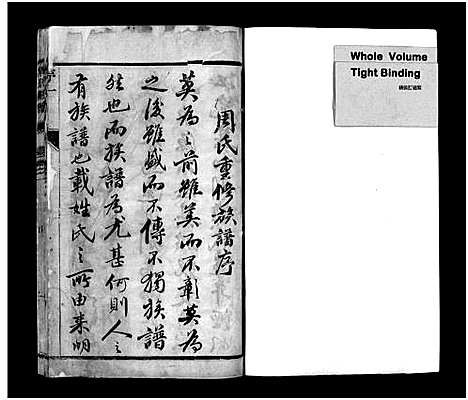 周氏重修族譜序
莫為之前雖美而不彰莫為
之後雖盛而不傳不獨族譜
然也而族譜為尤甚何則人之
有族譜也載姓氏之所由来明
Whole Volume
Tight Binding